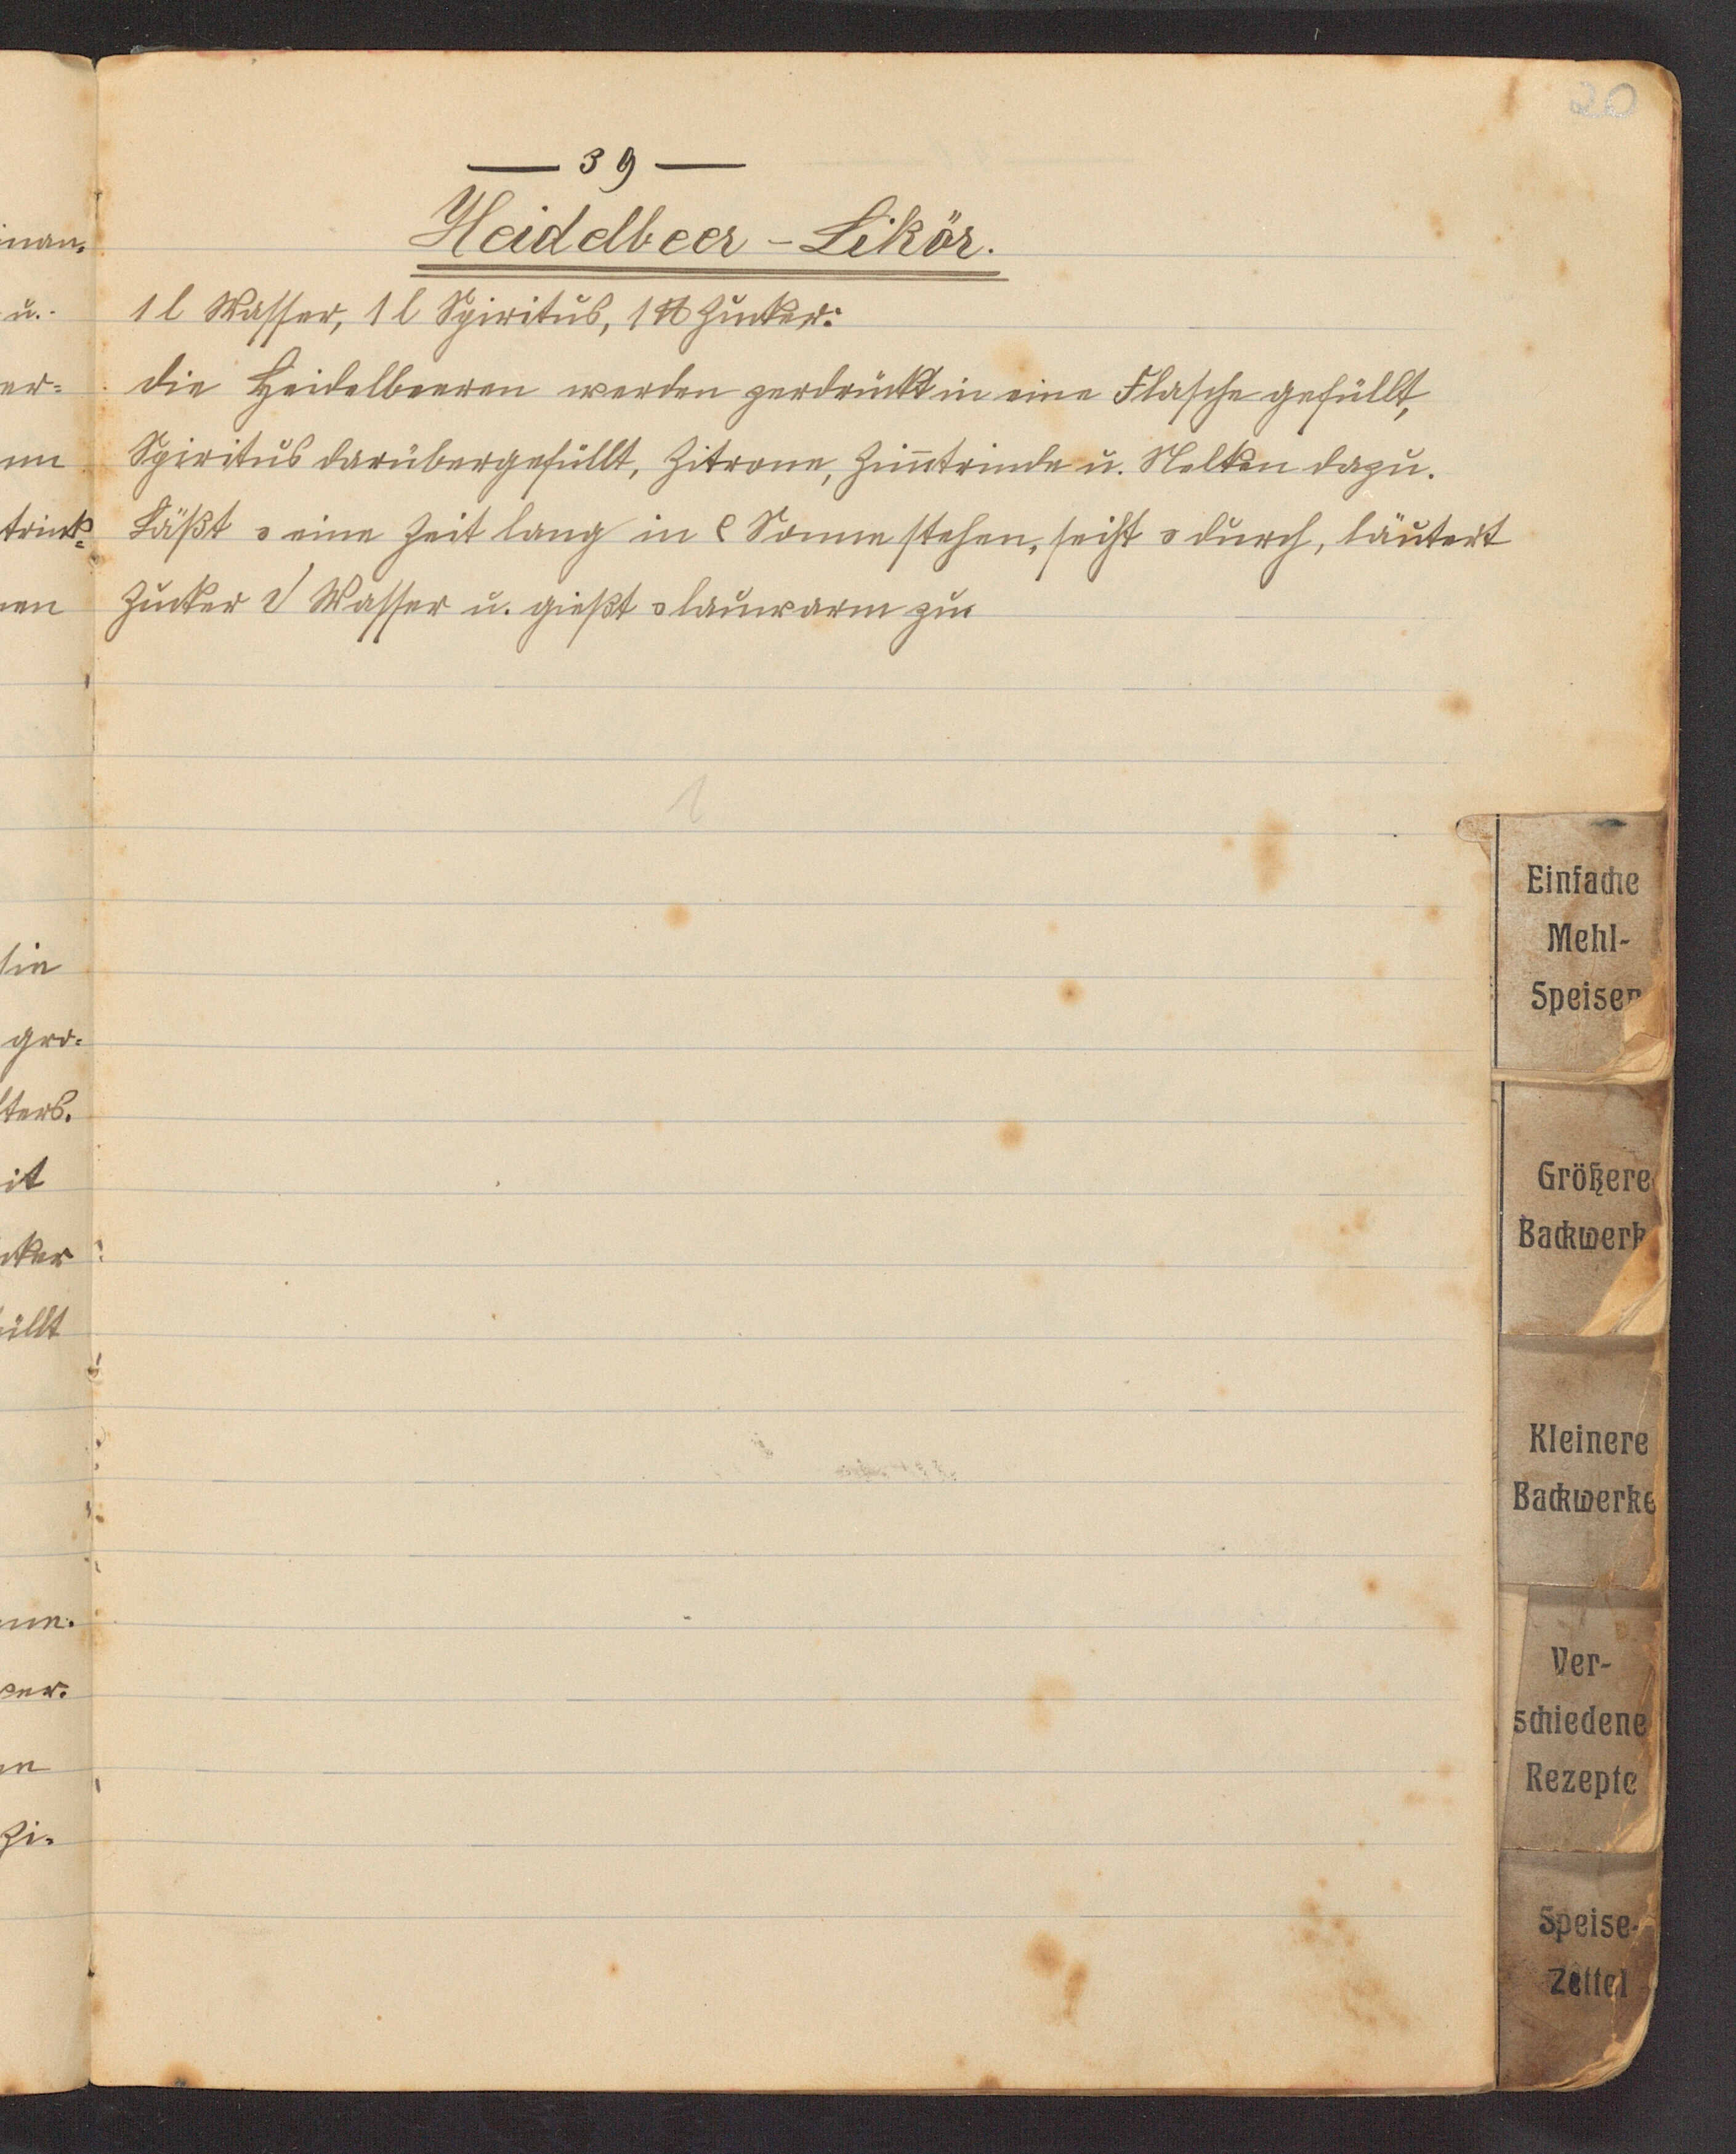 20
— 39 —
Heidelbeer - Likör.
1 l Wasser, 1 l Spiritus, 1 ℔ Zucker:
die Heidelbeeren werden zerdrückt in eine Flasche gefüllt,
Spiritus darübergefüllt, Zitrone, Zim̄trinde u. Nelken dazu.
Läßt eine Zeit lang in Sonne stehen, seiht durch, läutert
Zucker Wasser u. gießt lauwarm zu.
Einfache
Mehl-
Speisen
Größere
Backwerk
Kleinere
Backwerke
Ver-
schiedene
Rezepte
Speise-
Zettel
inan-
u.
er=
nn
trink=
nen
sin
gro-
ters.
it
cker
üllt
nn.
er.
n
Zi-